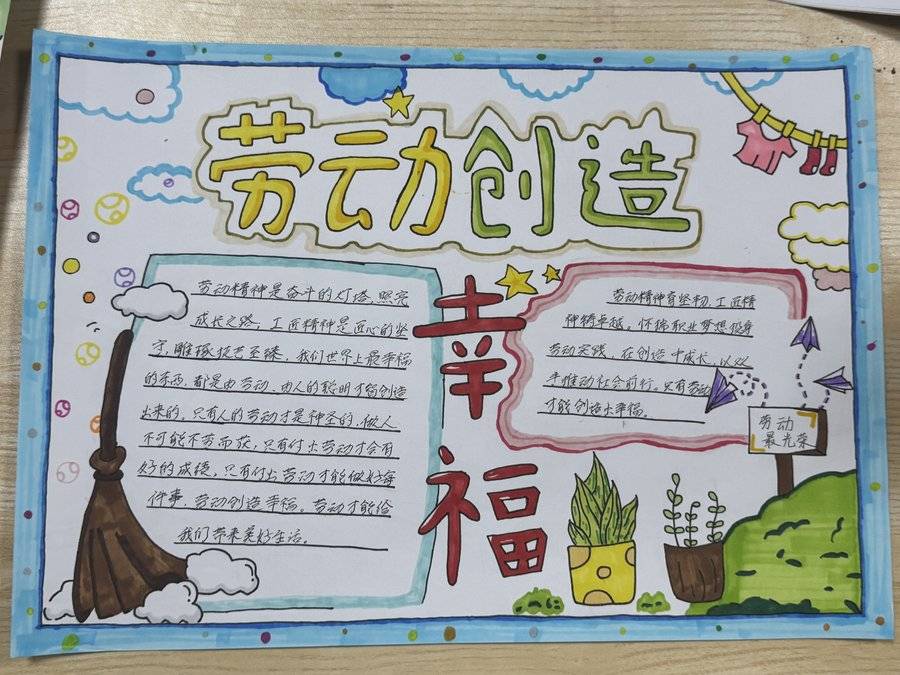 劳动创造
幸福
劳动精神是奋斗的灯塔，照亮
成长之路，工匠精神是匠心的坚
守，雕琢技艺至臻，我们世界上最幸福
的东西，都是由劳动、由人的聪明才能创造
出来的，只有人的劳动才是神圣的，做人
不可能不劳而获，只有付出劳动才会有
好的成绩，只有付出劳动才能做好每
件事，劳动创造幸福。劳动才能给
我们带来美好生活。
劳动精神育坚韧，工匠精
神铸卓越。怀揣职业梦想投身
劳动实践，在创造中成长，以双
手推动社会前行。只有劳动
才能创造出幸福。
劳动
最光荣